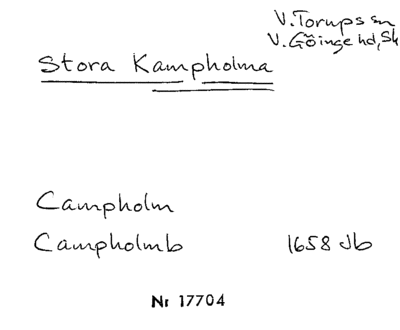 V. Torups sn
V. Göinge hd, Sk
Stora Kampholma
Campholm
Campholmb 1658 Jb
Nr 17704